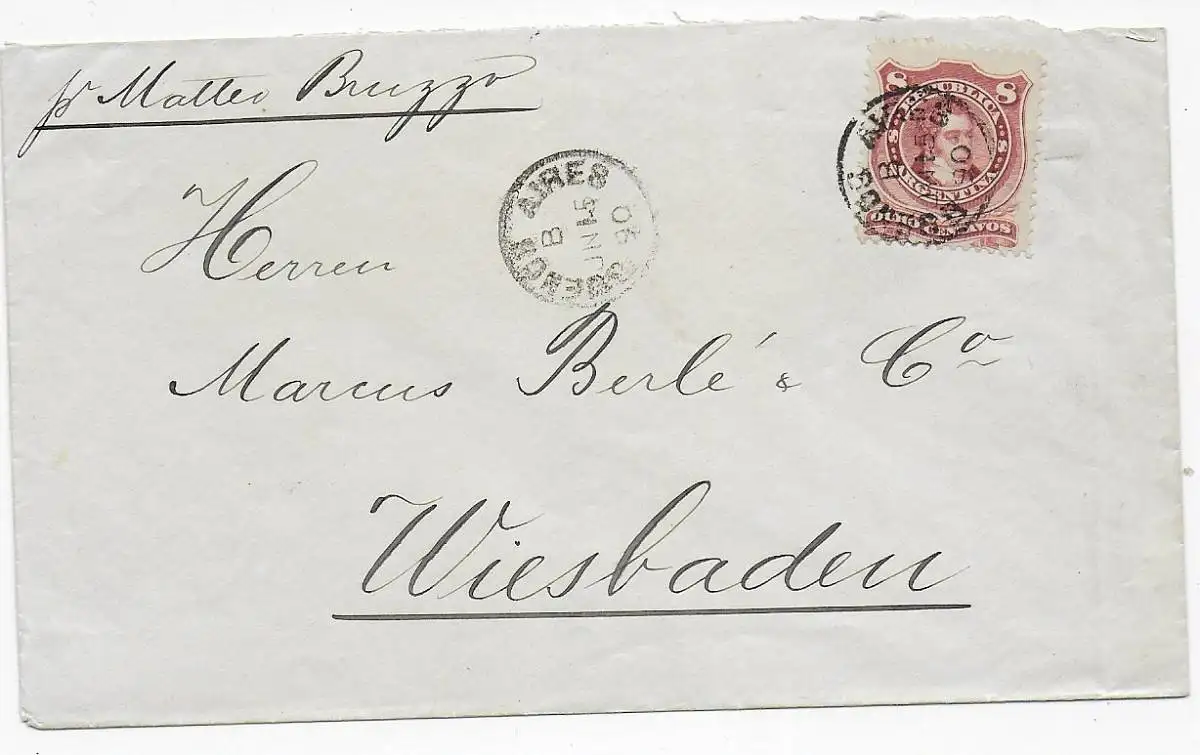 pr Matteo Bruzzo
8 8
REPUBLICA
ARGENTINA
OCHO CENTAVOS
BUENOS AIRES
B
JN 15
90
BUENOS AIRES
B
JN 15
90
Herren
Marcus Berlé & Co
Wiesbaden